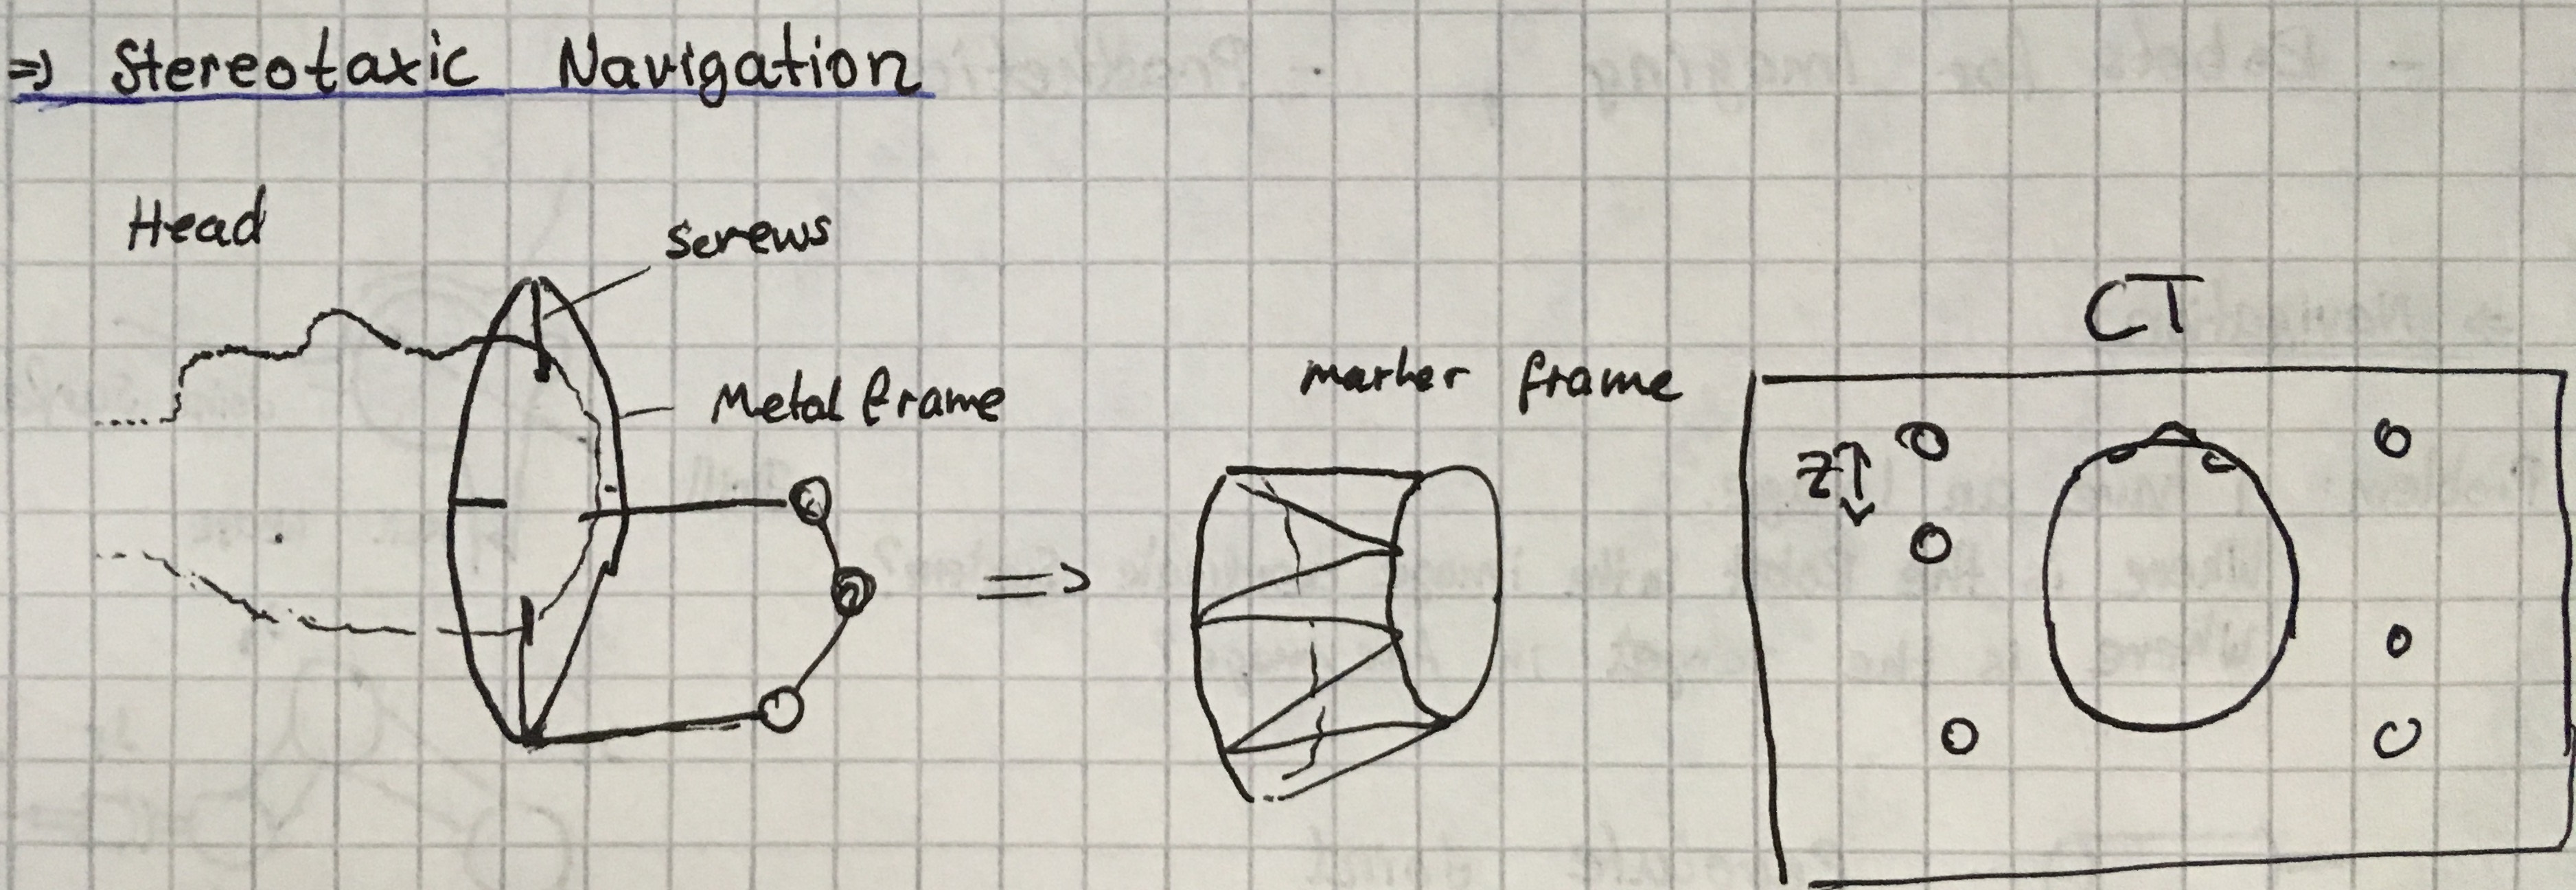 => Stereotaxic Navigation
Head
screws
Metal frame
=>
marker frame
CT
Z